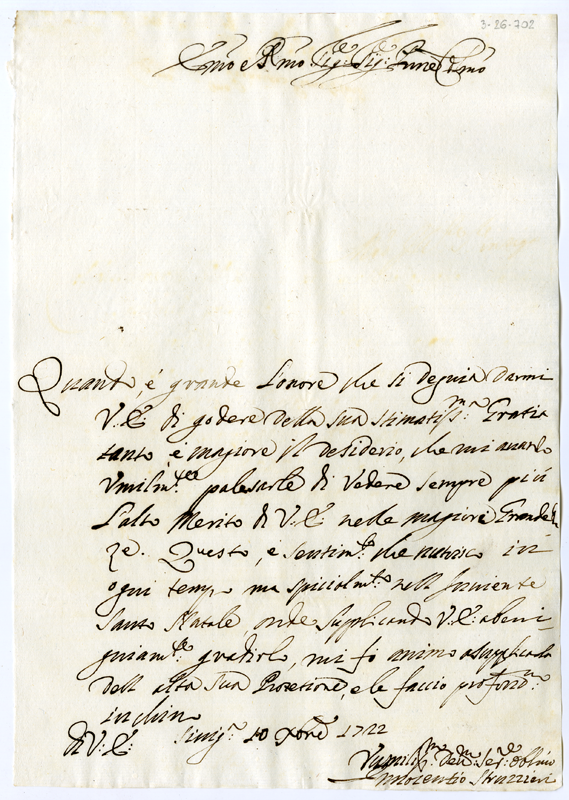 3-26-702
Emo e Rmo Sig:re Sig:re
Quanto, é grande L'onore che si degnia Darmi
V.E: di godere della sua stimatiss:ma Gratia
tanto é magiore il desiderio, che mi
Vmilm:te palesarle di Vedere sempre più
L'alto Merito di V:E: nelle magiori Grande
ze. Questo, e sentim:to che nutrisco in
ogni tempo ma spicialm:te nell
Santo Natale, onde supplicando V:E: abeni
gniam:te gradirlo, mi fo animo
dell alta sua Protetione, e le faccio
inchino
di V:E: 10 Xbre 1722
Innocentio Struzzieri